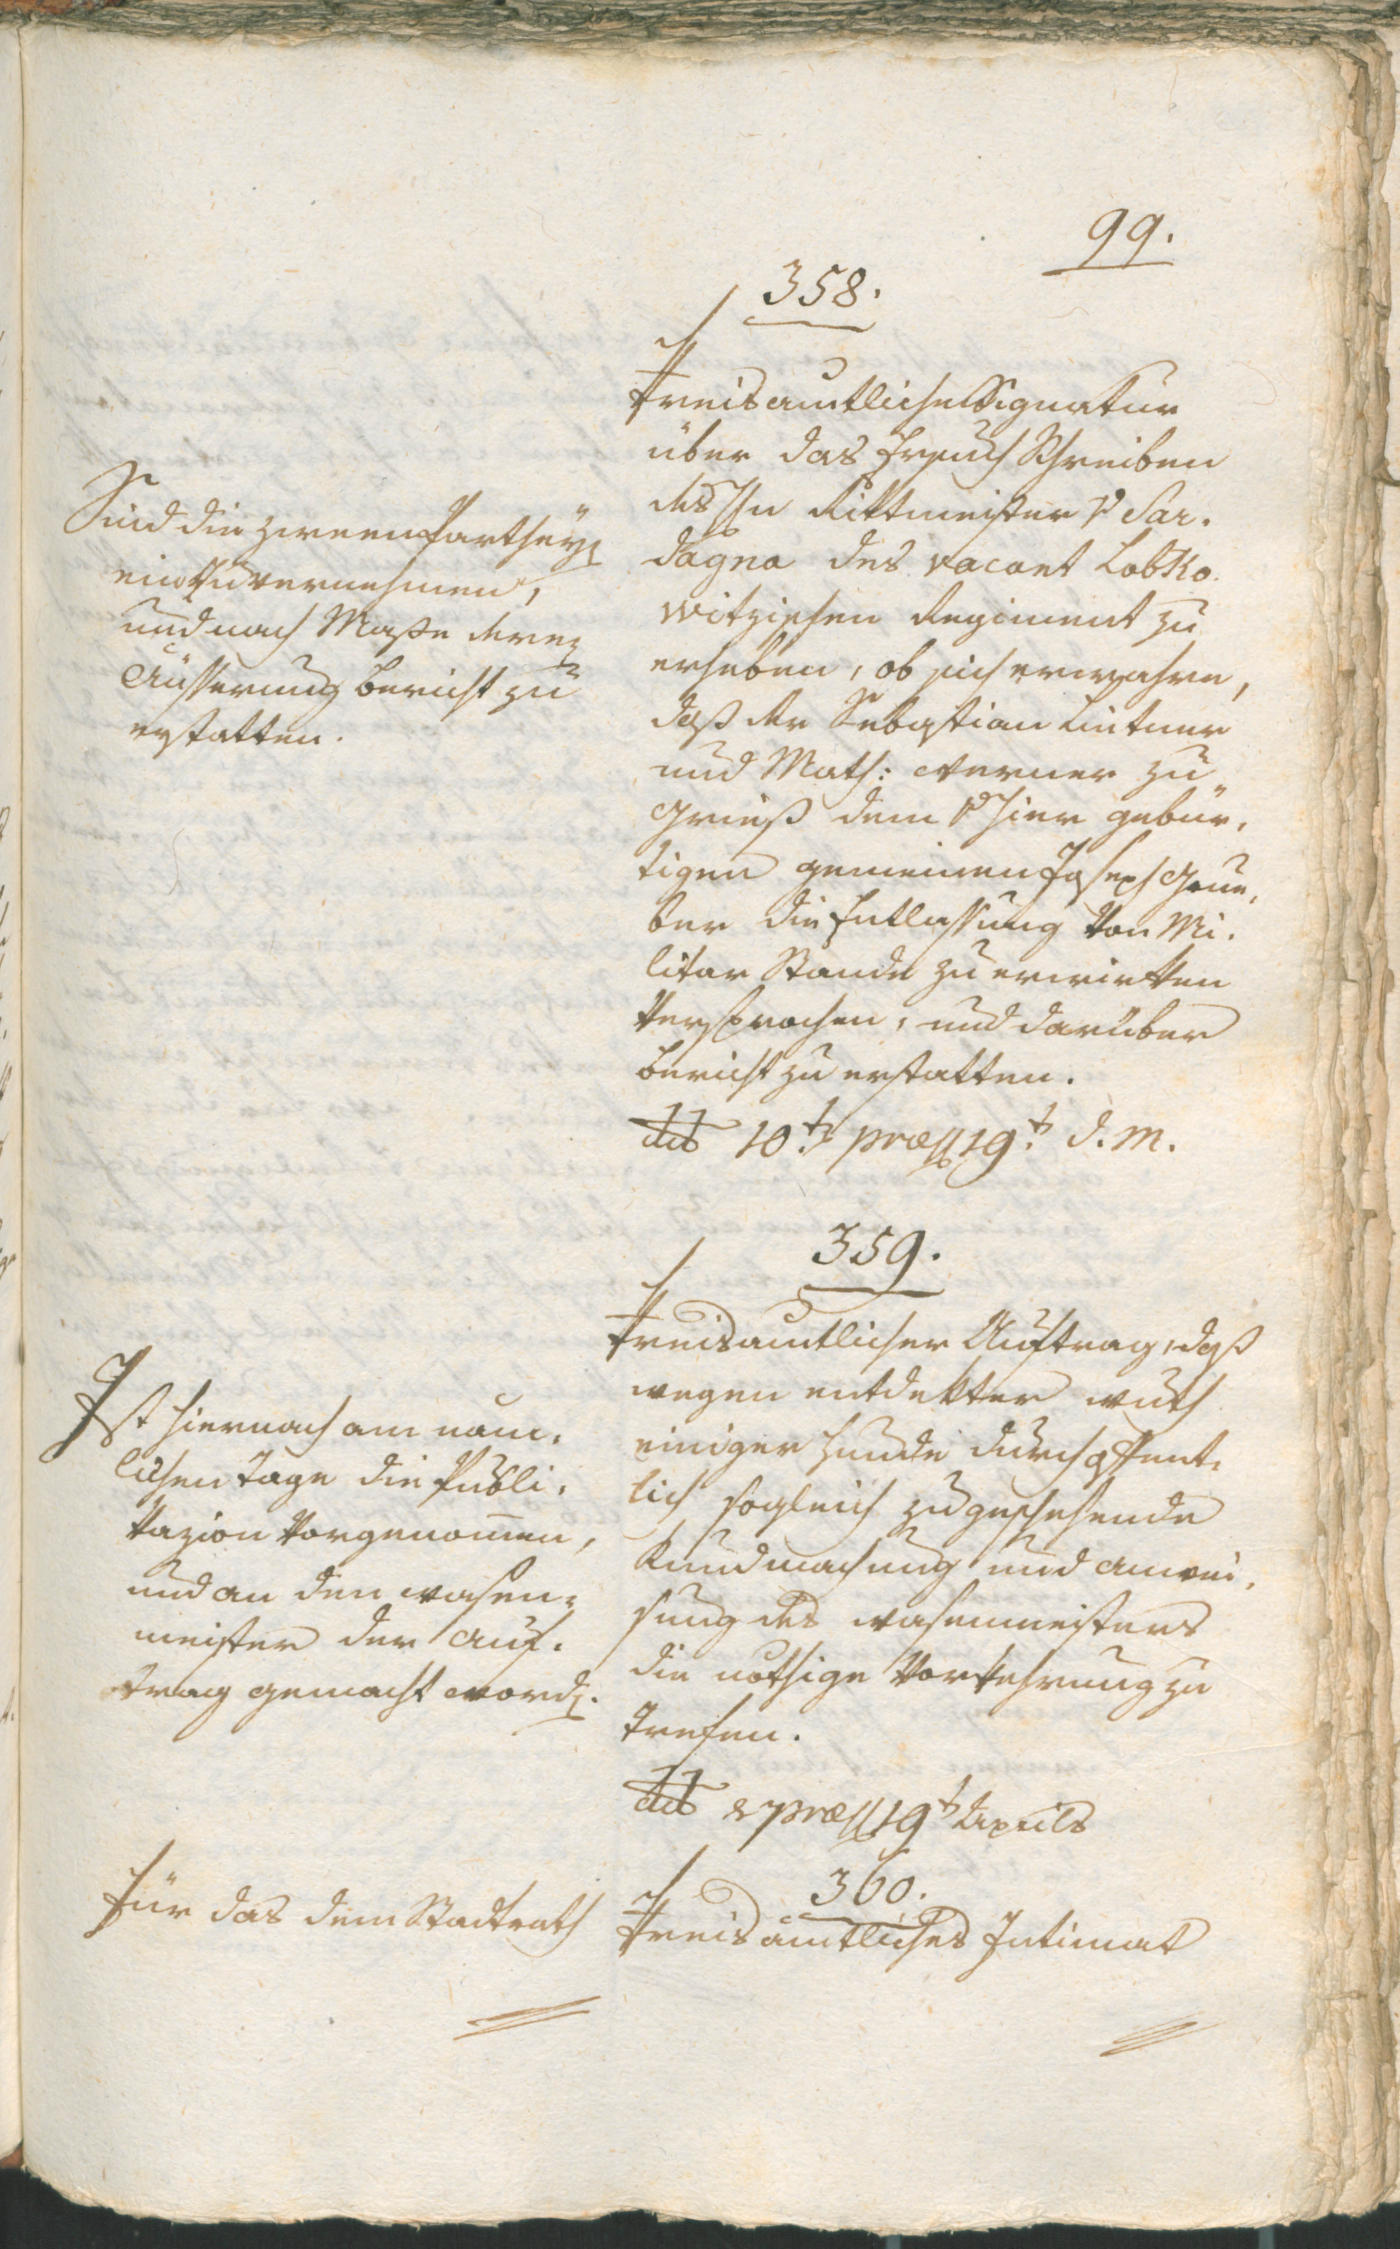 99.
358.
Kreisamtliche Signatur
über das Ersuch Schreiben
des Hn Rittmeister v Sar-
dagna des vacant Lobko-
witzischen Regiment zu
erheben, ob sich erwahre,
daß der Sebastian Lintner
und Math: Werner zu
Grieß dem v hier gebür-
tigen gemeinen Joseph Grue-
ber die Entlassung von Mi-
litar Stande zu erwirken
versprochen, und darüber
Bericht zu erstatten.
dto 10t praes 19t d. M.
Sind die zween Partheyen
einzuvernehmen,
und nach Maße deren
Äusserung Bericht zu
erstatten.
359.
Kreisamtlicher Auftrag, daß
wegen entdekter Wuth
einiger Hunde durch offent-
lich sogleich zu geschehende
Kundmachung und Anwei-
sung des Wasenmeisters
die nothige Vorkehrung zu
trefen.
dto & praes 19t Aprils
Ist hiernach am näm-
lichen Tage die Publi-
kazion vorgenommen,
und an den Wasen-
meister der Auf-
trag gemacht worden.
360.
Kreisämtliches Intimat
Für das dem Stadtrath